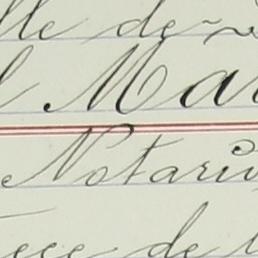 lle de
l Mar
Notariu
ece de l